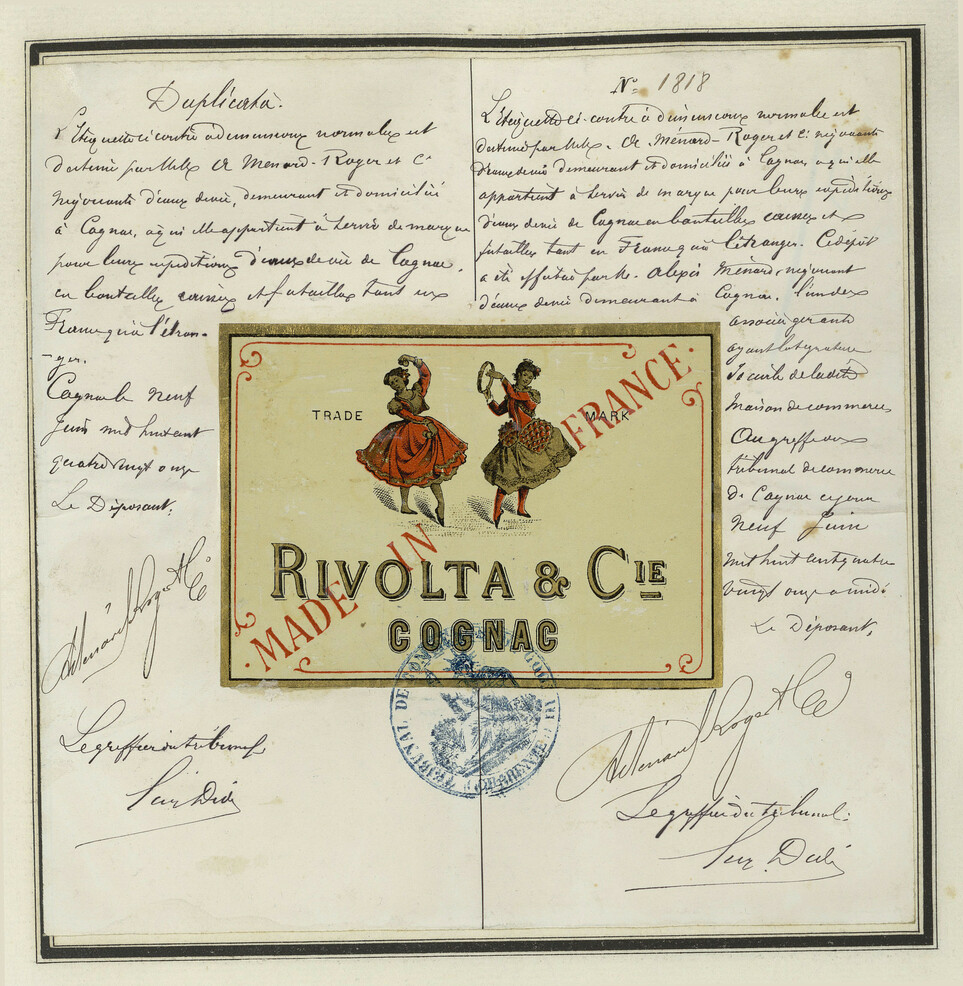 Duplicata.
L'Etiquette ci contre a dimensions normales est
destinée par MM. A Menard-Roger et Cie
négociants d'eaux de vie, demeurant et domicilié
à Cognac, à qui elle appartient à servir de marque
pour leurs expéditions d'eaux de vie de Cognac,
en bouteilles caisses et futailles tant en
France qu'à l'étran-
-ger.
Cognac le neuf
Juin mil huit cent
quatre vingt onze
Le Déposant.
A Menard Roger & Cie
Le greffier du tribunal
N° 1818
L'étiquette ci-contre à dimensions normales est
destinée par MM. A. Ménard-Roger et Cie négociants
d'eaux de vie demeurant et domiciliés à Cognac à qui elle
appartient à servir de marque pour leurs expéditions
d'eaux de vie de Cognac en bouteilles caisses et
futailles tant en France qu'à l'étranger. Ce dépôt
a été effectué par M. Alexis Ménard, négociant
d'eaux de vie demeurant à Cognac. l'un des
associés gérants
ayant la signature
Sociale de la dite
Maison de commerce
Au greffe du
tribunal de commerce
de Cognac ce jour
neuf Juin
mil huit cent quatre
vingt onze à midi
Le Déposant,
A Menard Roger & Cie
Le greffier du tribunal.
TRADE MARK
MADE IN FRANCE
RIVOLTA & CIE
COGNAC
TRIBUNAL DE COMMERCE